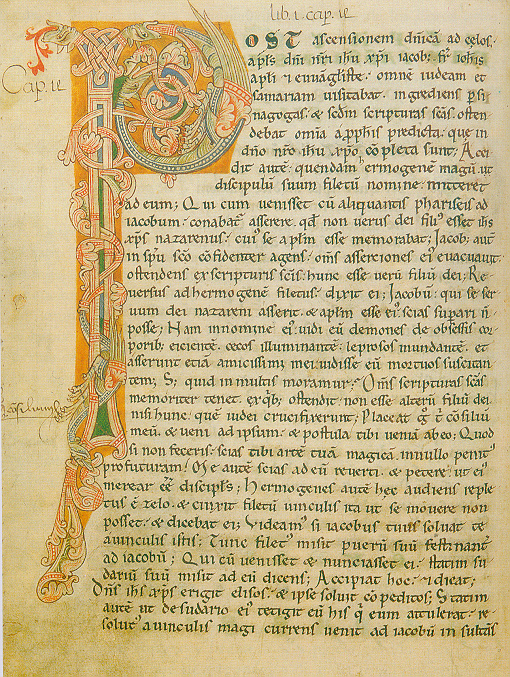 lib. i. cap. ix
Cap. ix
POST ascensionem dn̄icā ad celos.
apl̄s dn̄i nr̄i ihū xp̄i iacob; fr̄ ioh̄is
apl̄i & euuāgl̄iste. omnē iudeam et
samariam uisitabat. ingrediens p̄ si
nagogas. & scdm̄ scripturas sc̄as osten
debat omīa a p̄ph̄is predicta. que in
dn̄o nr̄o ihū xp̄o cōpleta sunt; Acci
dit autē. quendam ermogenē magū. ut
discipulū suum filetū nomine mitteret
ad eum; Qui cum uenisset cū aliquantis phariseis ad
iacobum. conabat̄ asserere. qd̄ non uerus dei filiꝰ esset ih̄s
xp̄s nazarenus. cuiꝰ se apl̄m esse memorabat; Iacob; aut̄
in sp̄u sc̄o cōfidenter agens. om̄s assertiones eiꝰ euacuauit.
ostendens ex scripturis sc̄is. hunc esse uerū filiū dei; Re
uersus ad hermogenē filetus. dixit ei; Iacobū. qui se ser
uum dei nazareni asserit. & apl̄m esse eiꝰ scias supari n̄
posse; Nam in nomine eiꝰ uidi eū demones de obsessis cor
porib; eicientē. cecos illuminantē. leprosos mundantē. et
asserunt etiā amicissimi mei uidisse eū mortuos suscitan
tem; S; quid in multis moramur; Om̄s scripturas sc̄as
memoriter tenet. ex qb; ostendit non esse alterū filiū dei.
nisi hunc quē iudei crucifixerunt; Placeat g̊ t̄ cōsiliū
meū. & ueni ad ipsum. & postula tibi ueniā ab eo; Quod
si non feceris. scias tibi artē tuā magicā in nullo penitꝰ
profuturam; Me autē scias ad eū reuerti. & petere ut eiꝰ
merear eē discipl̄s; Hermogenes autē hec audiens reple
tus ē zelo. & uinxit filetū uinculis ita ut se mouere non
posset. & dicebat ei; Videamꝰ si iacobus tuus soluat te
a uinculis istis; Tunc filetꝰ misit puerū suū festinant̄
ad iacobū; Qui cū uenisset & nunciasset ei. statim su
dariū suū misit ad eū dicens; Accipiat hoc. & dicat;
Dn̄s ih̄s xp̄s erigit elisos. & ipse soluit cōpeditos; Statim
autē ut de sudario eiꝰ tetigit eū his q̄ eum attulerat. re
solutꝰ a uinculis magi currens uenit ad iacobū insultās